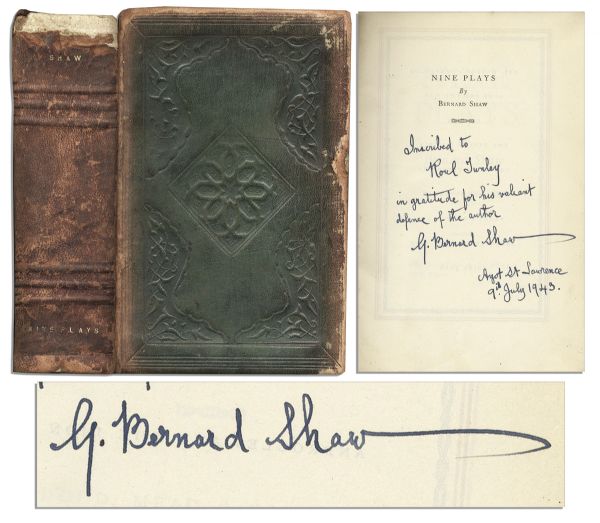 SHAW
NINE PLAYS
NINE PLAYS
By
BERNARD SHAW
Inscribed to
Roul Tunley
in gratitude for his valiant
defence of the author
G. Bernard Shaw
Ayot St Lawrence
9th July 1943.
G. Bernard Shaw